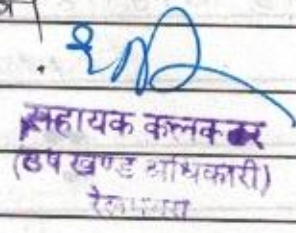 सहायक कलक्टर
(उप खण्ड अधिकारी)